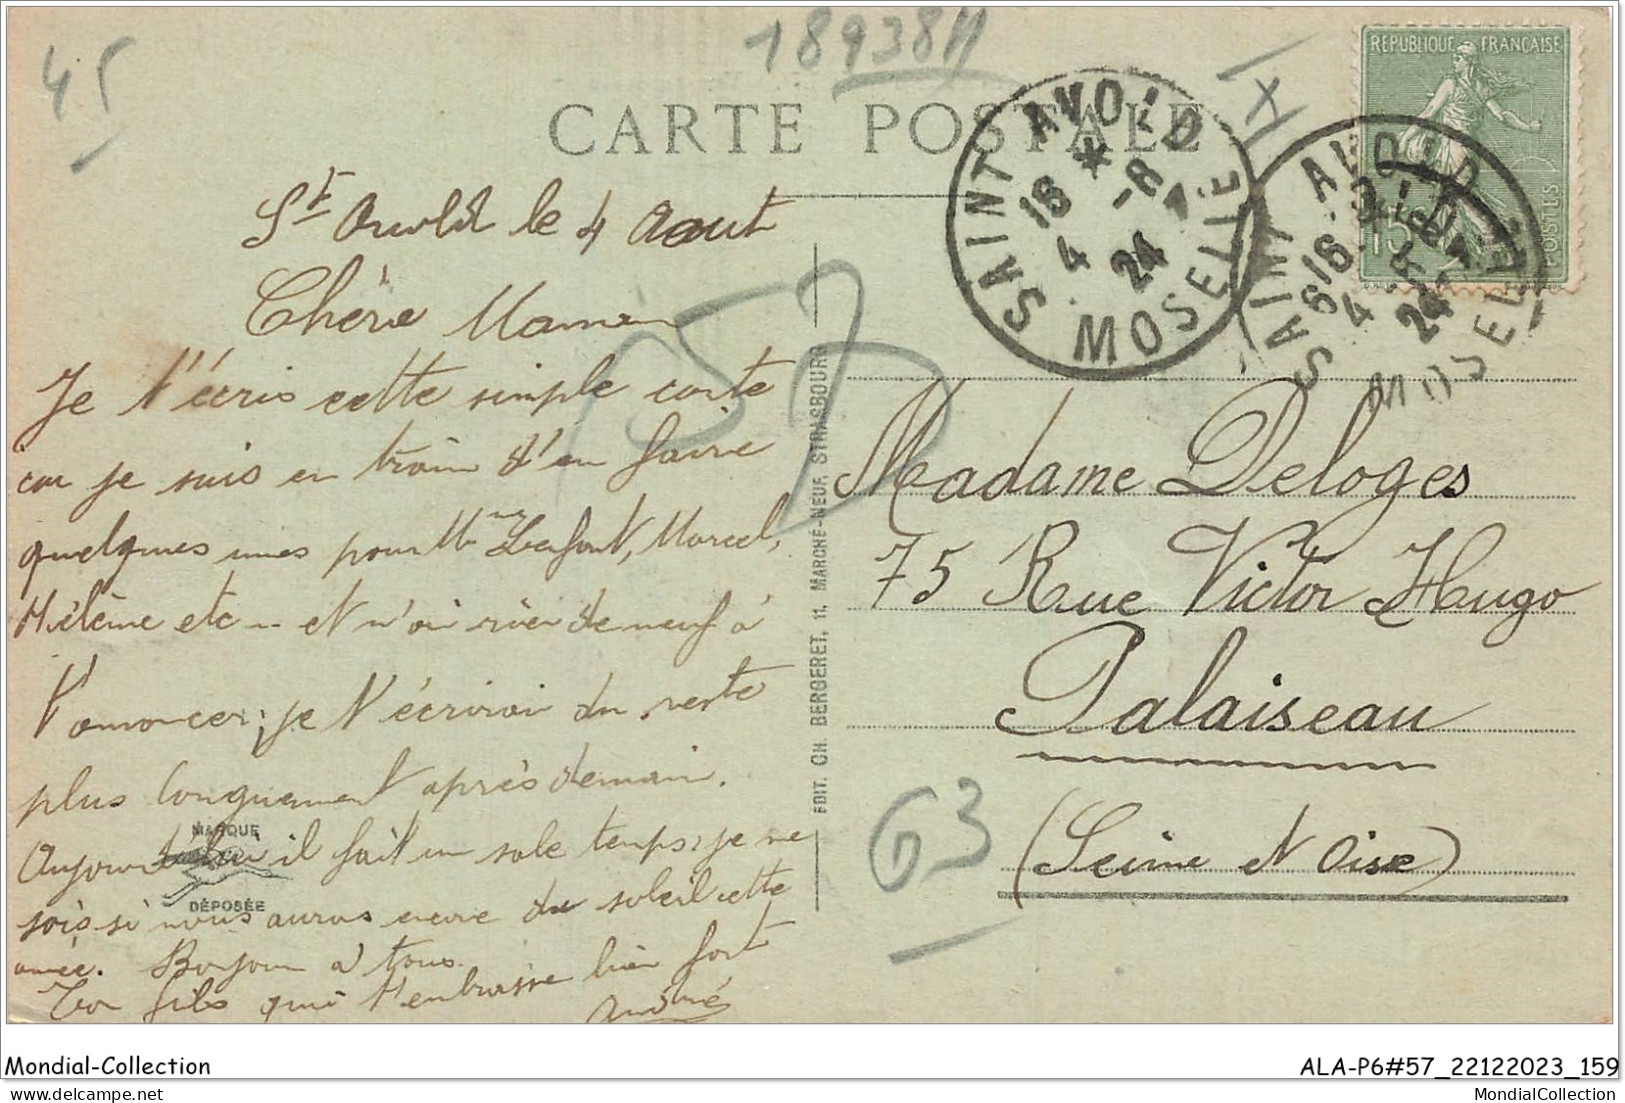 45
18938A
CARTE POSTALE
RÉPUBLIQUE FRANÇAISE
15c
POSTES
SAINT AVOLD
18 * -8
4 24
MOSELLE
SAINT AVOLD
MOSELLE
St Avold le 4 Aout
Chère Maman
Je t'écris cette simple carte
car je suis en train d'en faire
quelques unes pour Mme Lafont, Marcel,
Hélène etc .. et n'ai rien de neuf à
t'annoncer; je t'écrirai du reste
plus longuement après demain.
Aujourd'hui il fait un sale temps; je ne
sais si nous aurons encore du soleil cette
année. Bonjour à tous.
Ton fils qui t'embrasse bien fort
André
MARQUE
DÉPOSÉE
EDIT. CH. BERGERET, 11, MARCHÉ-NEUF, STRASBOURG
Madame Deloges
75 Rue Victor Hugo
Palaiseau
(Seine et Oise)
63
Mondial-Collection
ALA-P6#57_22122023_159
MondialCollection
MondialCollection